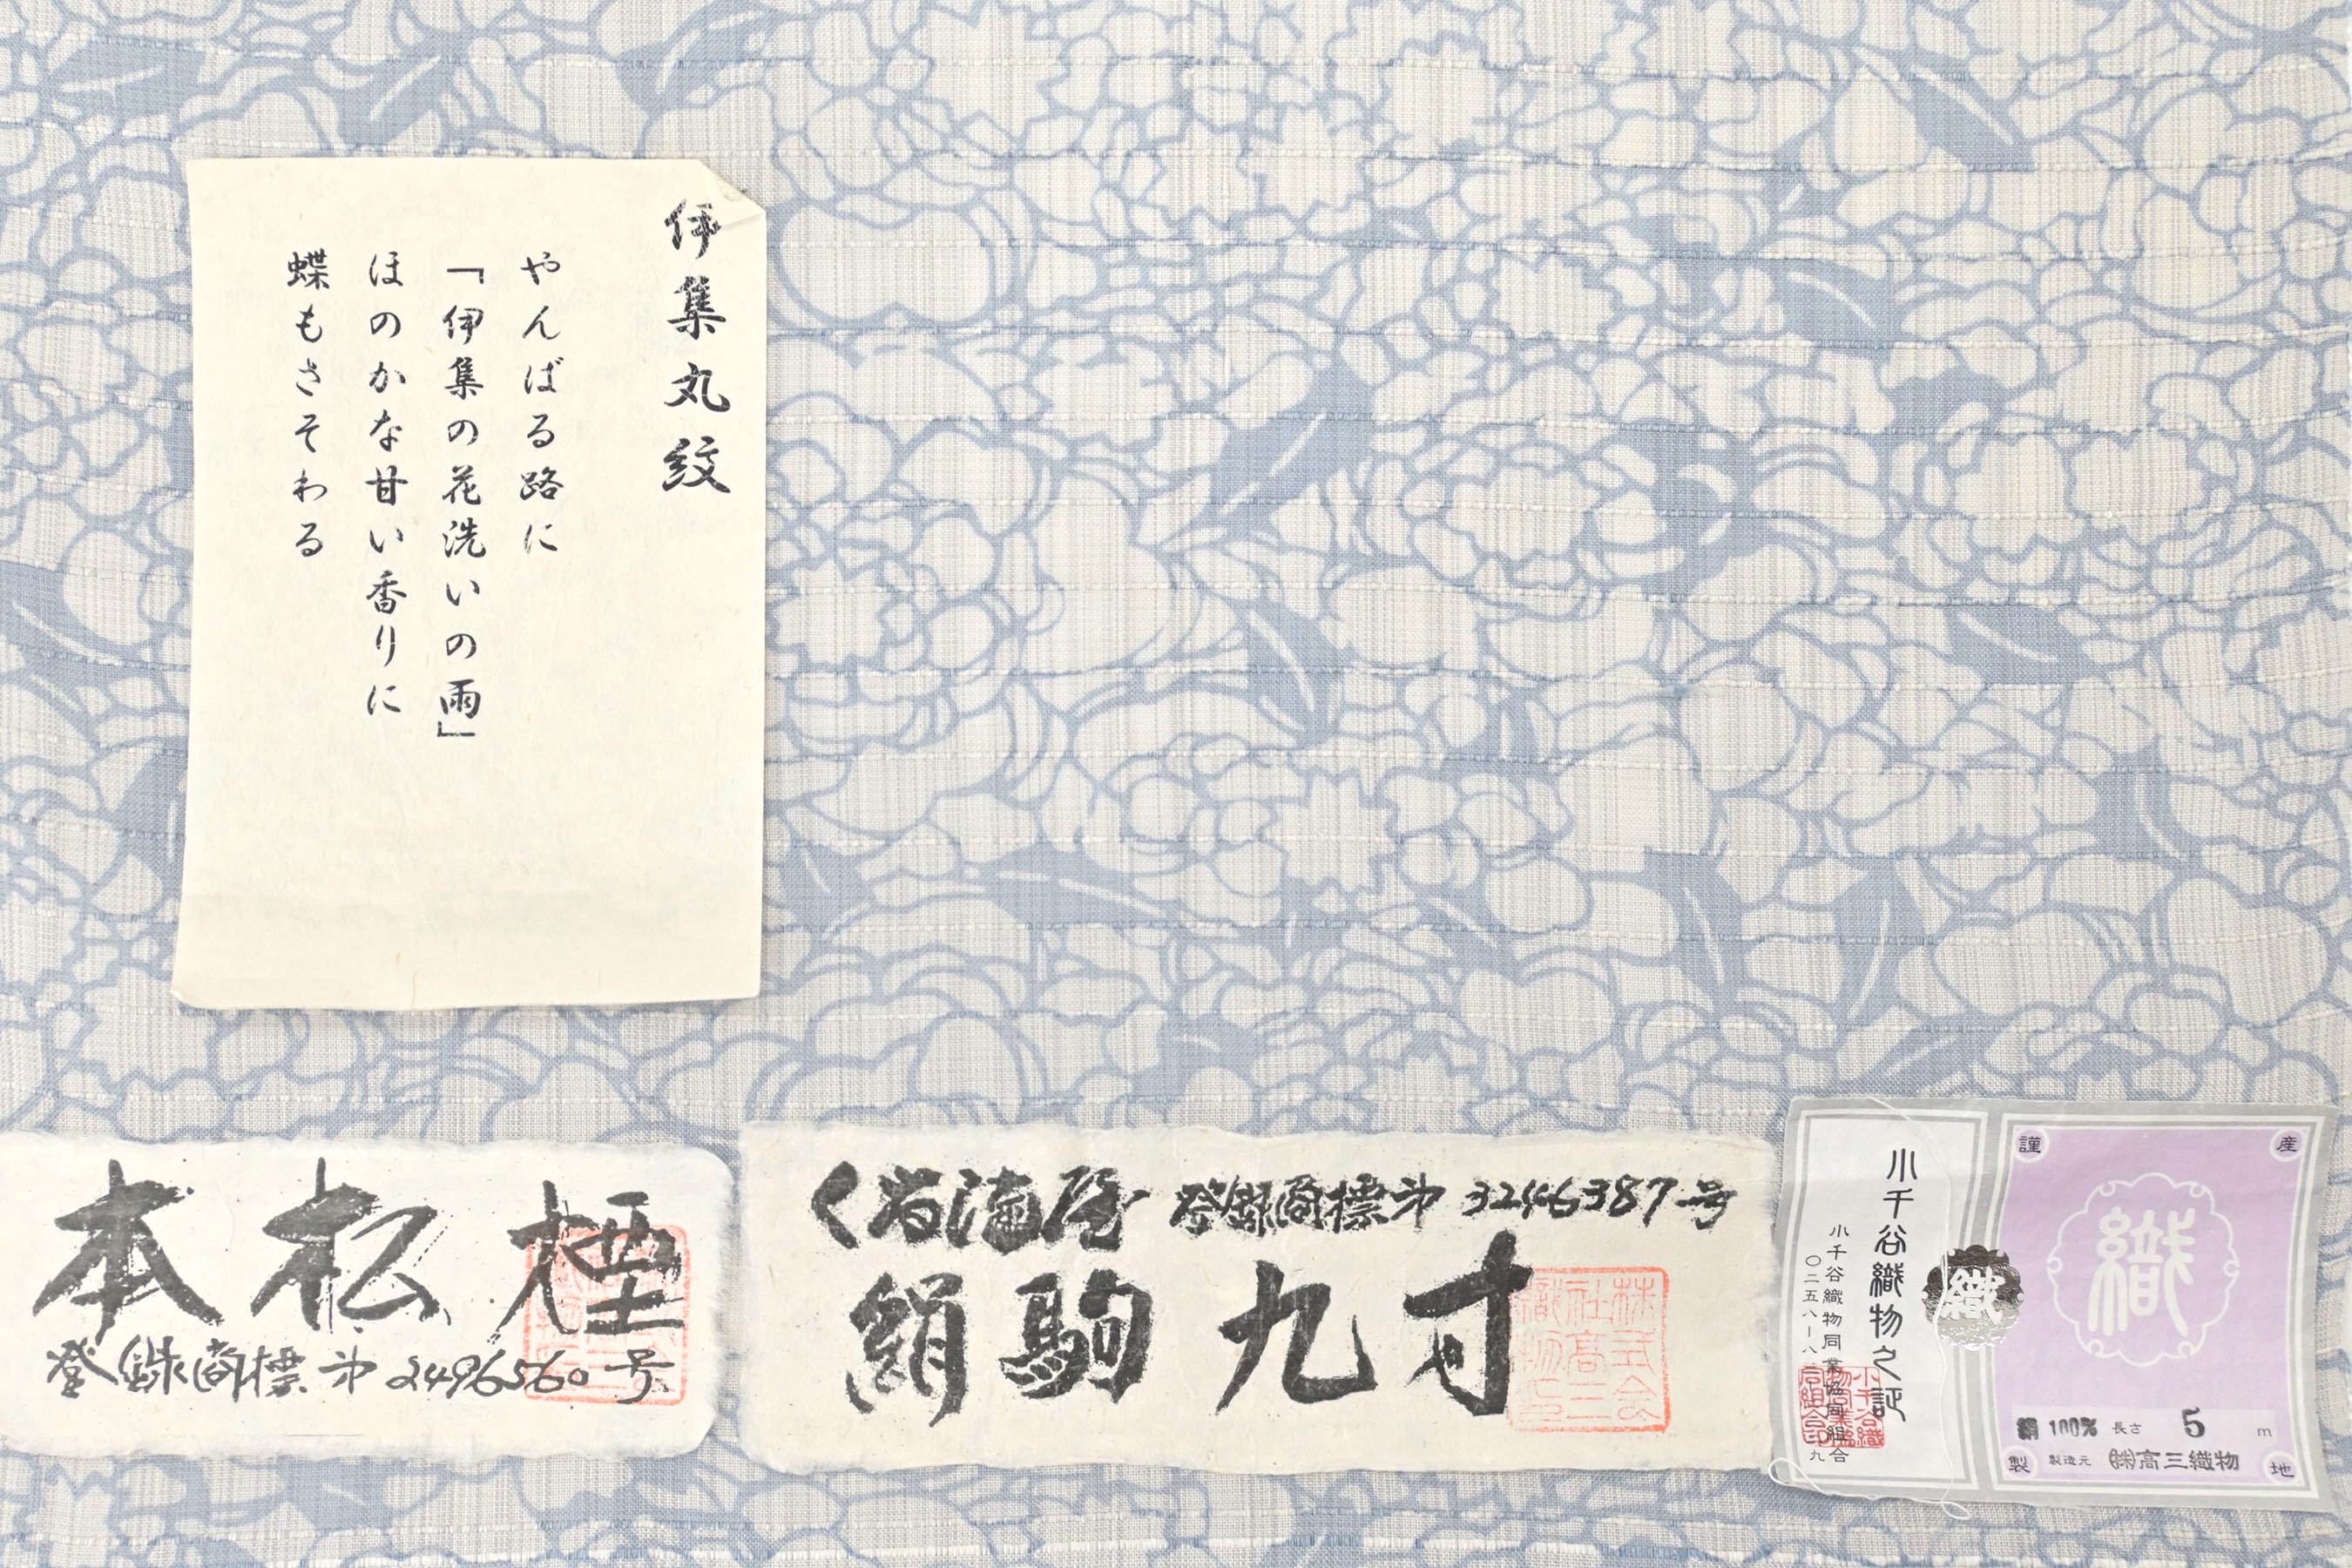 伊集丸紋
やんばる路に
「伊集の花洗いの雨」
ほのかな甘い香りに
蝶もさそわる
本松煙
登録商標 第2496560号
登録商標第3246387号
絹駒九寸
株式会
社高三
織物
小千谷織物之証
小千谷織物同業協同組合
謹
産
製
地
織
織
絹 100% 長さ 5 m
製造元 ㈱高三織物